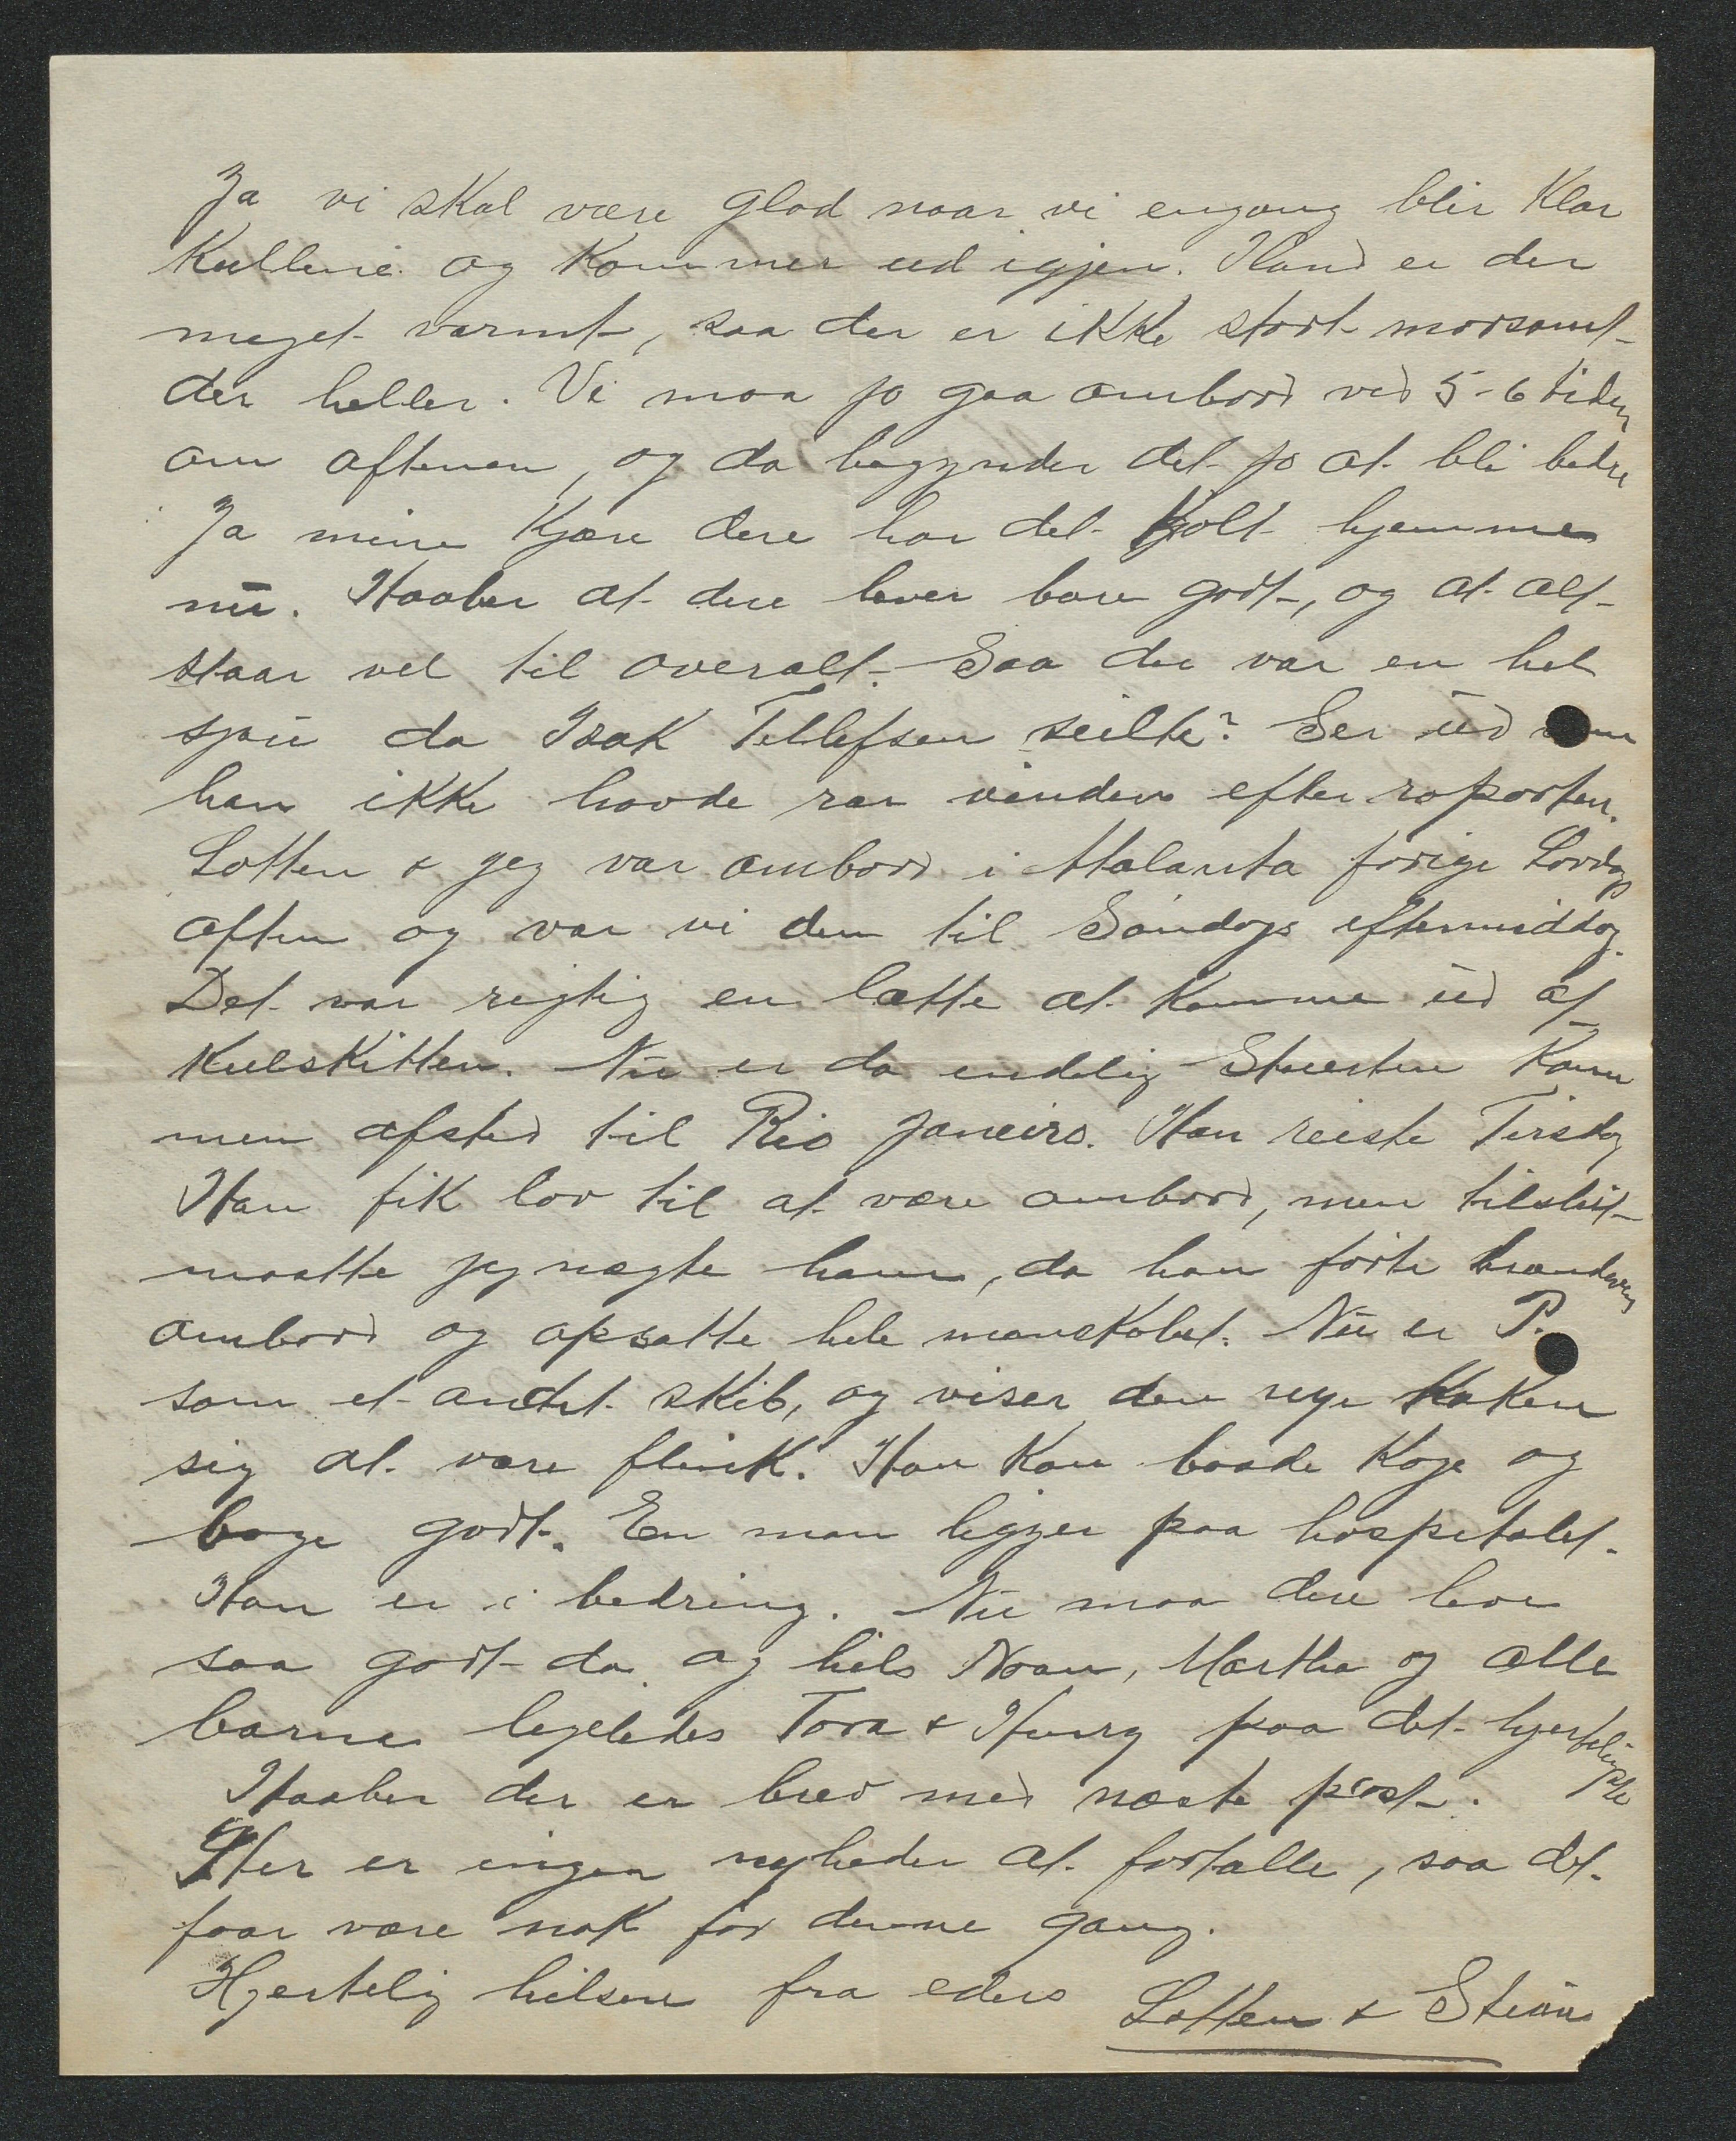 Ja vi skal være glad naar vi engang blir klar
kullene og kommer ud igjen. Iland er der
meget varmt, saa der er ikke stort morsomt
der heller. Vi maa jo gaa ombord ved 5-6 tiden
om aftenen, og da begynder det jo at bli bedre
Ja mine kjære dere har det kjolt hjemme
nu. Haaber at dere lever bare godt, og at alt
staar vel til overalt. Saa der var en hel
sjau da Isak Tellefsen seilte? Ser ud som
han ikke havde rar vinden efter raporten.
Lotten & jeg var ombord i Atalanta forige Lordags
aften og var vi der til Söndags eftermiddag.
Det var rigtig en lætte at komme ud af
kulskitten. Nu er da endelig Stuerten kom
men afsted til Rio Janeiro. Han reiste Tirsdag
Han fik lov til at være ombord, men tilslut
maatte jeg nægte ham, da han förte brændevin
ombord og opsatte hele manskabet. Nu er P.
som et andet skib, og viser den nye kokken
sig at være flink. Han kan baade koge og
bage godt. En man ligger paa hospitalet.
Han er i bedring. Nu maa dere leve
saa godt da og hils Moen, Martha og alle
barna ligeledes Tora & Henry paa det hjerteligste
Haaber der er brev med næste post.
Her er ingen nyheder at fortælle, saa det
faar være nok for denne gang.
Hjertelig hilsen fra eders Lotten & Stian